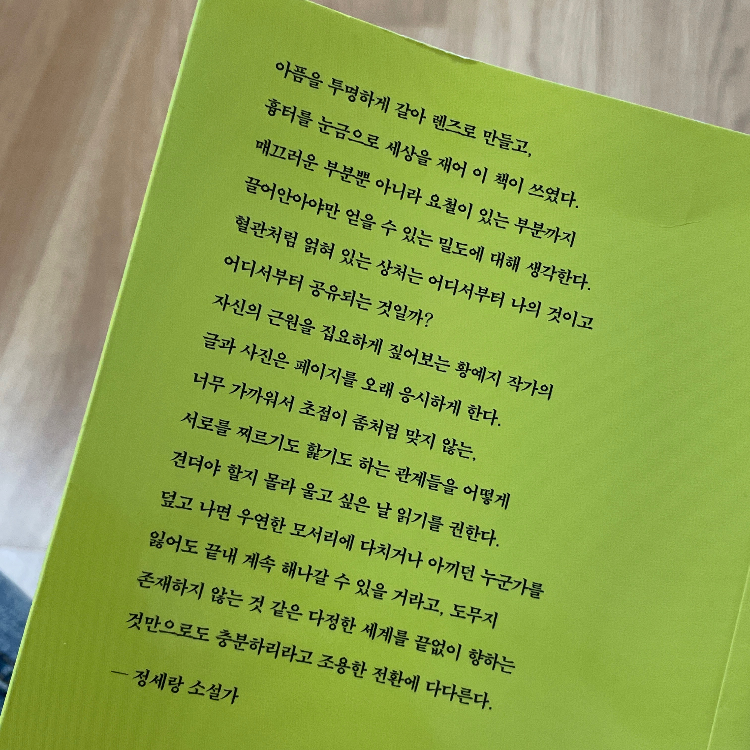 아픔을 투명하게 갈아 렌즈로 만들고,
흉터를 눈금으로 세상을 재어 이 책이 쓰였다.
매끄러운 부분뿐 아니라 요철이 있는 부분까지
끌어안아야만 얻을 수 있는 밀도에 대해 생각한다.
혈관처럼 얽혀 있는 상처는 어디서부터 나의 것이고
어디서부터 공유되는 것일까?
자신의 근원을 집요하게 짚어보는 황예지 작가의
글과 사진은 페이지를 오래 응시하게 한다.
너무 가까워서 초점이 좀처럼 맞지 않는,
서로를 찌르기도 핥기도 하는 관계들을 어떻게
견뎌야 할지 몰라 울고 싶은 날 읽기를 권한다.
덮고 나면 우연한 모서리에 다치거나 아끼던 누군가를
잃어도 끝내 계속 해나갈 수 있을 거라고, 도무지
존재하지 않는 것 같은 다정한 세계를 끝없이 향하는
것만으로도 충분하리라고 조용한 전환에 다다른다.
— 정세랑 소설가